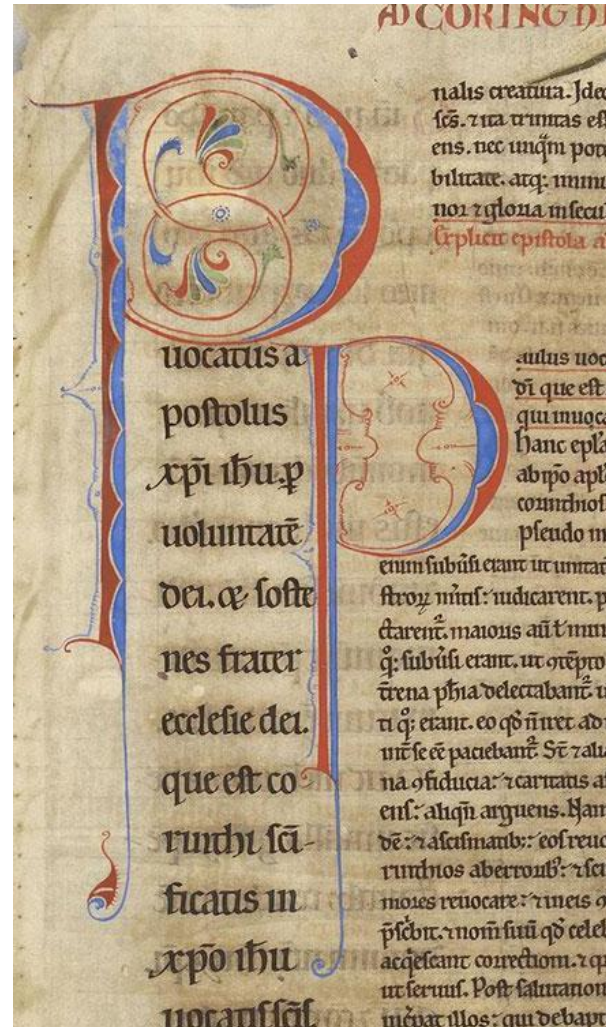 AD CORINGDI
P
uocatus a
postolus
xp̄i ih̄u. ꝑ
uoluntatē
dei. ⁊ soste
nes frater
ecclesie dei.
que est co
rinthi sc̄i-
ficatis in
xp̄o ih̄u
uocatis sc̄is.
nalis creatura. Ideo
sc̄s. ⁊ ita trinitas est
ens. nec unq̄m poti
bilitate. atq; immu
nor ⁊ gloria in secul
Explicit epistola a
P
aulus uoc
d̄i que est
qui inuoca
hanc epl̄a
ab ip̄o apl̄
corinthios
pseudo in
enim subūsi erant ut unitat
iudicarent. p
ctarent. maioris
subūsi erant. ut
delectabant̄. u
erant. eo
paciebant̄. S̄t ⁊ alia
⁊ caritatis a
ens: aliq̄n arguens. Nam
eos reuo
rinthios
mores reuocare: ⁊ in eis
celeb
acq̄escant correctioni. ⁊ q
ut seruus. Post salutation
illos: qui debant